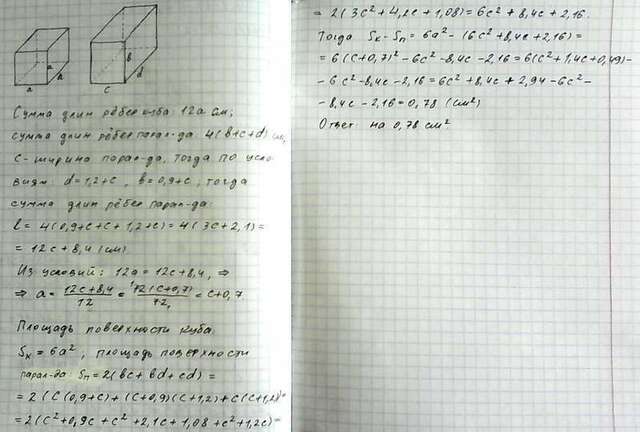 a
a
a
b
d
c
Сумма длин рёбер куба: 12a см;
сумма длин рёбер парал-да 4(b+c+d) см,
c - ширина парал-да, тогда по усло-
виям: d=1,2+c, b=0,9+c, тогда
сумма длин рёбер парал-да:
l = 4(0,9+c+c+1,2+c)=4(3c+2,1)=
= 12c+8,4 (см)
Из условий: 12a = 12c+8,4, ⇒
⇒ a = 12c+8,4/12 = 12(c+0,7)/12 = c+0,7
Площадь поверхности куба
Sк = 6a², площадь поверхности
парал-да: Sп=2(bc+bd+cd) =
= 2(c(0,9+c)+(c+0,9)(c+1,2)+c(c+1,2))=
=2(c²+0,9c+c²+2,1c+1,08+c²+1,2c)=
= 2(3c²+4,2c+1,08)=6c²+8,4c+2,16.
Тогда Sк-Sп=6a²-(6c²+8,4c+2,16)=
= 6(c+0,7)²-6c²-8,4c-2,16=6(c²+1,4c+0,49)-
- 6c²-8,4c-2,16=6c²+8,4c+2,94-6c²-
- 8,4c-2,16=0,78 (см²)
Ответ: на 0,78 см².